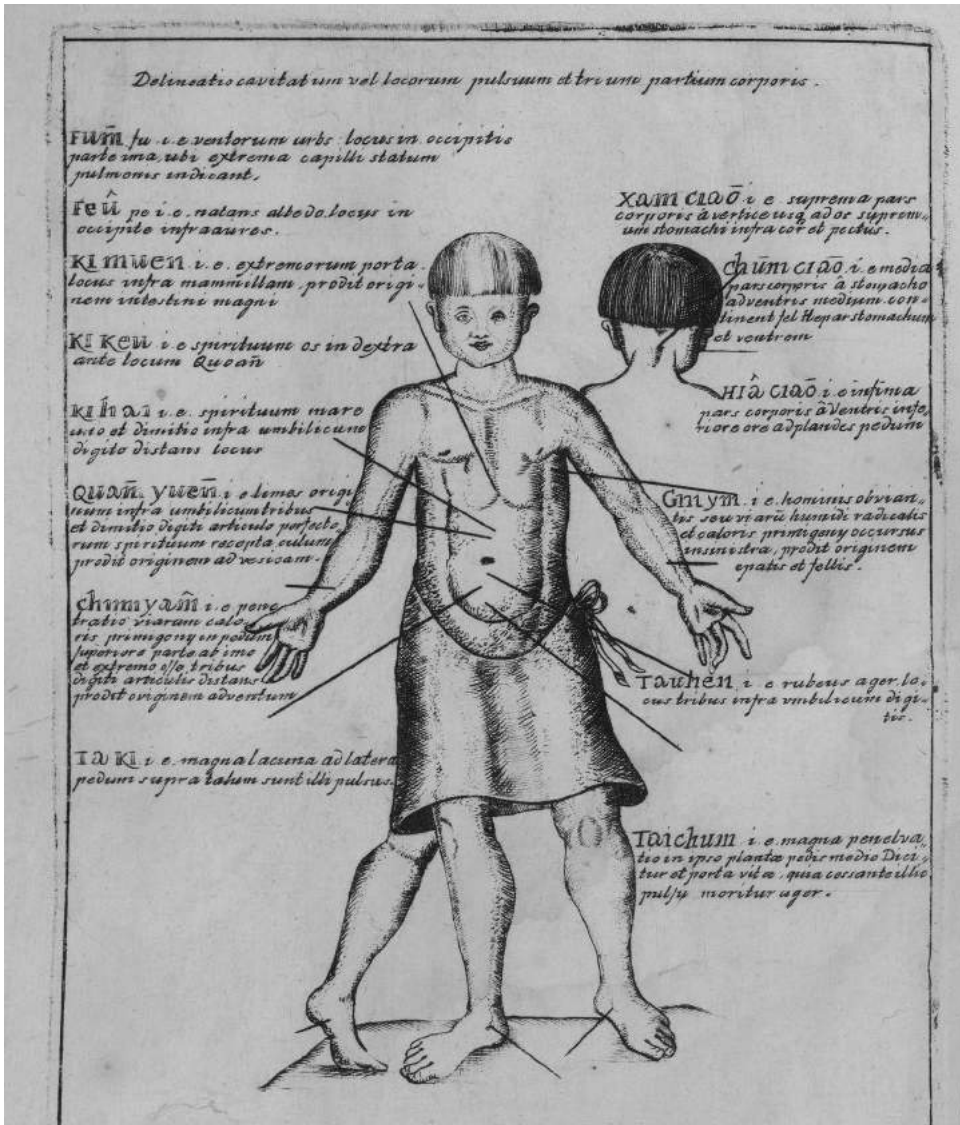 Delineatio cavitatum vel locorum pulsuum et trium partium corporis.
FUM̃ fu i.e. ventorum urbs locus in occipitis
parte ima, ubi extrema capilli statum
pulmonis indicant.
FEÛ pe i.e. natans albedo locus in
occipite infra aures.
KI MUEN i.e. extremorum porta
locus infra mammillam, prodit origi-
nem intestini magni
KI KEU i.e. spirituum os in dextra
ante locum Quoañ
KI HAI i.e. spirituum mare
uno et dimitio infra umbilicum
digito distans locus
QUAÑ YUEÑ i.e. limes origi
num infra umbilicum tribus
et dimitio digiti articulo perfecto
rum spirituum receptaculum
prodit originem ad vesicam.
Chumyam̃ i.e. pene
tratio viarum calo
ris primigenÿ in pedum
superiore parte ab imo
et extremo osse tribus
digiti articulis distans
prodit originem ad ventrum
TA KI i.e. magna lacuna ad latera
pedum supra talum sunt illi pulsus.
XAM CIAŌ i.e. suprema pars
corporis à vertice usq ad os suprem-
um stomachi infra cor et pectus.
CHŪM CIAŌ i.e media
pars corporis à stomacho
ad ventris medium con-
tinent fel Hepar stomachum
et ventrem
HIÂ CIAŌ i.e infima
pars corporis à ventris infe-
riore ore ad plandes pedum
GNIYM i.e. hominis obvian-
tis seu viarū humidi radicalis
et caloris primigenÿ occursus
in sinistra, prodit originem
epatis et fellis.
Tauhen i.e rubeus ager lo-
cus tribus infra vmbilicum digi-
tis.
Taichum i.e. magna penelva
tio in ipso plantæ pedis medio Dici-
tur et porta vitæ, quia cessante illic
pulsu moritur æger.